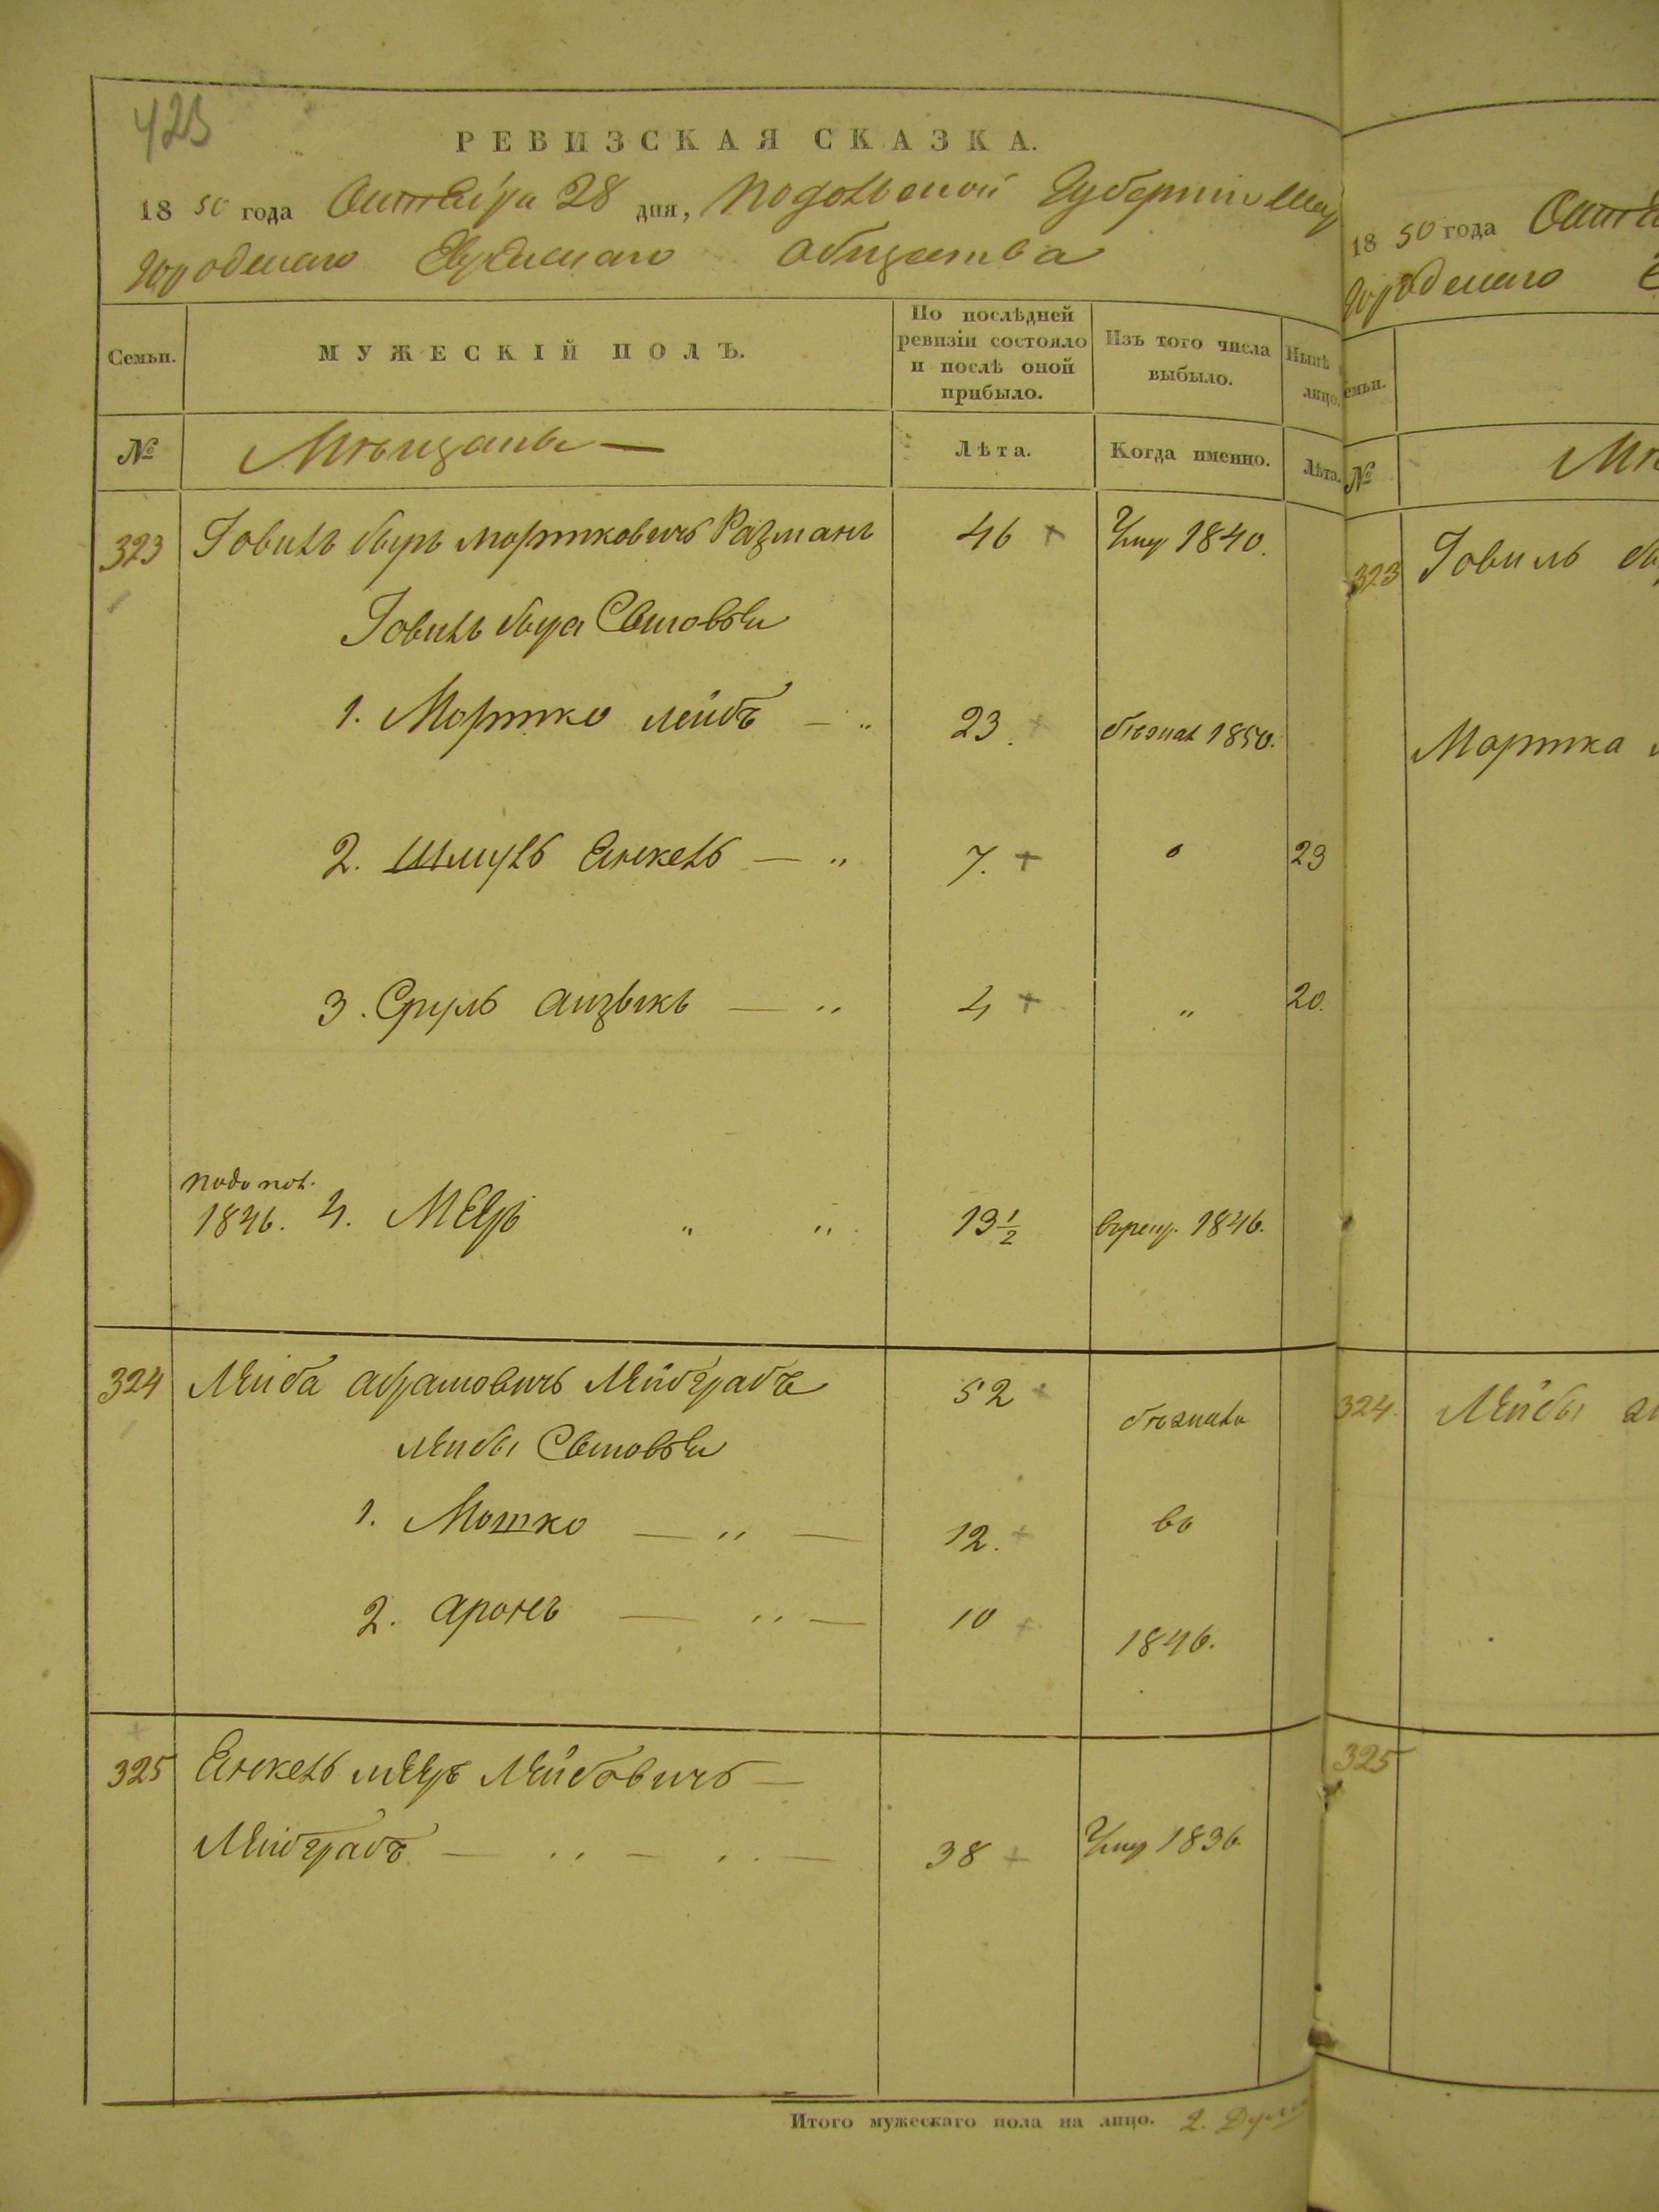 423
РЕВИЗСКАЯ СКАЗКА.
1850 года Октября 28 дня, Подольской Губернии Шар
городскаго Еврейскаго Общества
Семьи. МУЖЕСКІЙ ПОЛЪ. По послѣдней ревизіи состояло и послѣ оной прибыло. Изъ того числа выбыло. Нынѣ лицо.
№ Мѣщане — Лѣта. Когда именно. Лѣта.
323 Іовиль Беръ Мортковичъ Разманъ 46 Умер 1840.
Іовиль Бера Сыновья
1. Мортко Лейбъ — „ 23. бѣжал 1850.
2. Шмуль Янкель — „ 7. 23
3. Сруль Айзыкъ — „ 4 „ 20.
1846. 4. Мееръ „ „ 19½ в рекр. 1846.
324 Лейба Абрамовичъ Лейбграбъ 52
бѣжали
Лейбы Сыновья
1. Мошко — „ — 12. въ
2. Аронъ — „ — 10
1846.
325 Янкель Мееръ Лейбовичъ —
Лейбграбъ — „ — „ — 38 Умер 1836.
Итого мужескаго пола на лицо. 2. Души
1850 года
городскаго
емьи.
№
323 Іовиль
Мортка
324. Лейбы
325